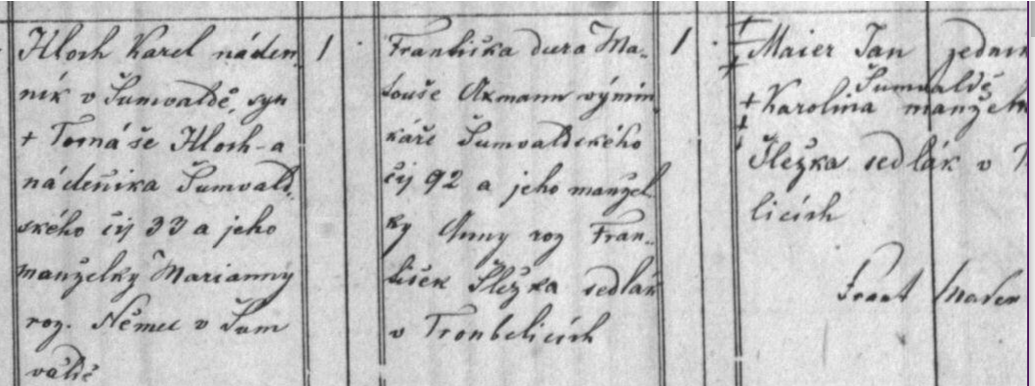 Kloch Karel náden
ník v Šumvaldě, syn
+ Tomáše Kloch-a
nádeníka Šumvald
ského čís 33 a jeho
manželky Marianny
roz. Němec v Šum
valdě
1
Františka dcera Ma-
touše Axmann výmin
káře Šumvaldského
čís 92 a jeho manžel
ky Anny roz Fran-
tišek Šležka sedlák
v Troubelicích
1
+++ Maier Jan
Šumvaldě
+++ Karolina manžel
Šležka sedlák v
licích
Frant